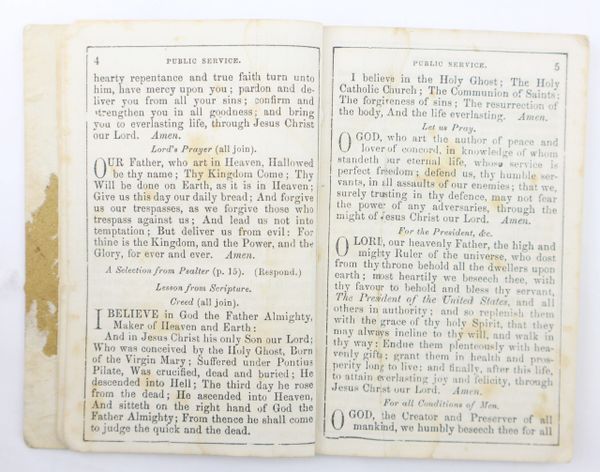 4 PUBLIC SERVICE.
hearty repentance and true faith turn unto
him, have mercy upon you; pardon and de-
liver you from all your sins; confirm and
strengthen you in all goodness; and bring
you to everlasting life, through Jesus Christ
our Lord. Amen.
Lord's Prayer (all join).
OUR Father, who art in Heaven, Hallowed
be thy name; Thy Kingdom Come; Thy
Will be done on Earth, as it is in Heaven;
Give us this day our daily bread; And forgive
us our trespasses, as we forgive those who
trespass against us; And lead us not into
temptation; But deliver us from evil: For
thine is the Kingdom, and the Power, and the
Glory, for ever and ever. Amen.
A Selection from Psalter (p. 15). (Respond.)
Lesson from Scripture.
Creed (all join).
I BELIEVE in God the Father Almighty,
Maker of Heaven and Earth:
And in Jesus Christ his only Son our Lord;
Who was conceived by the Holy Ghost, Born
of the Virgin Mary; Suffered under Pontius
Pilate, Was crucified, dead and buried; He
descended into Hell; The third day he rose
from the dead; He ascended into Heaven,
And sitteth on the right hand of God the
Father Almighty; From thence he shall come
to judge the quick and the dead.
PUBLIC SERVICE. 5
I believe in the Holy Ghost; The Holy
Catholic Church; The Communion of Saints;
The forgiveness of sins; The resurrection of
the body, And the life everlasting. Amen.
Let us Pray.
O GOD, who art the author of peace and
lover of concord, in knowledge of whom
standeth our eternal life, whose service is
perfect freedom; defend us, thy humble ser-
vants, in all assaults of our enemies; that we,
surely trusting in thy defence, may not fear
the power of any adversaries, through the
might of Jesus Christ our Lord. Amen.
For the President, &c.
O LORD, our heavenly Father, the high and
mighty Ruler of the universe, who dost
from thy throne behold all the dwellers upon
earth; most heartily we beseech thee, with
thy favour to behold and bless thy servant,
The President of the United States, and all
others in authority; and so replenish them
with the grace of thy holy Spirit, that they
may always incline to thy will, and walk in
thy way: Endue them plenteously with hea-
venly gifts; grant them in health and pros-
perity long to live; and finally, after this life,
to attain everlasting joy and felicity, through
Jesus Christ our Lord. Amen.
For all Conditions of Men.
O GOD, the Creator and Preserver of all
mankind, we humbly beseech thee for all